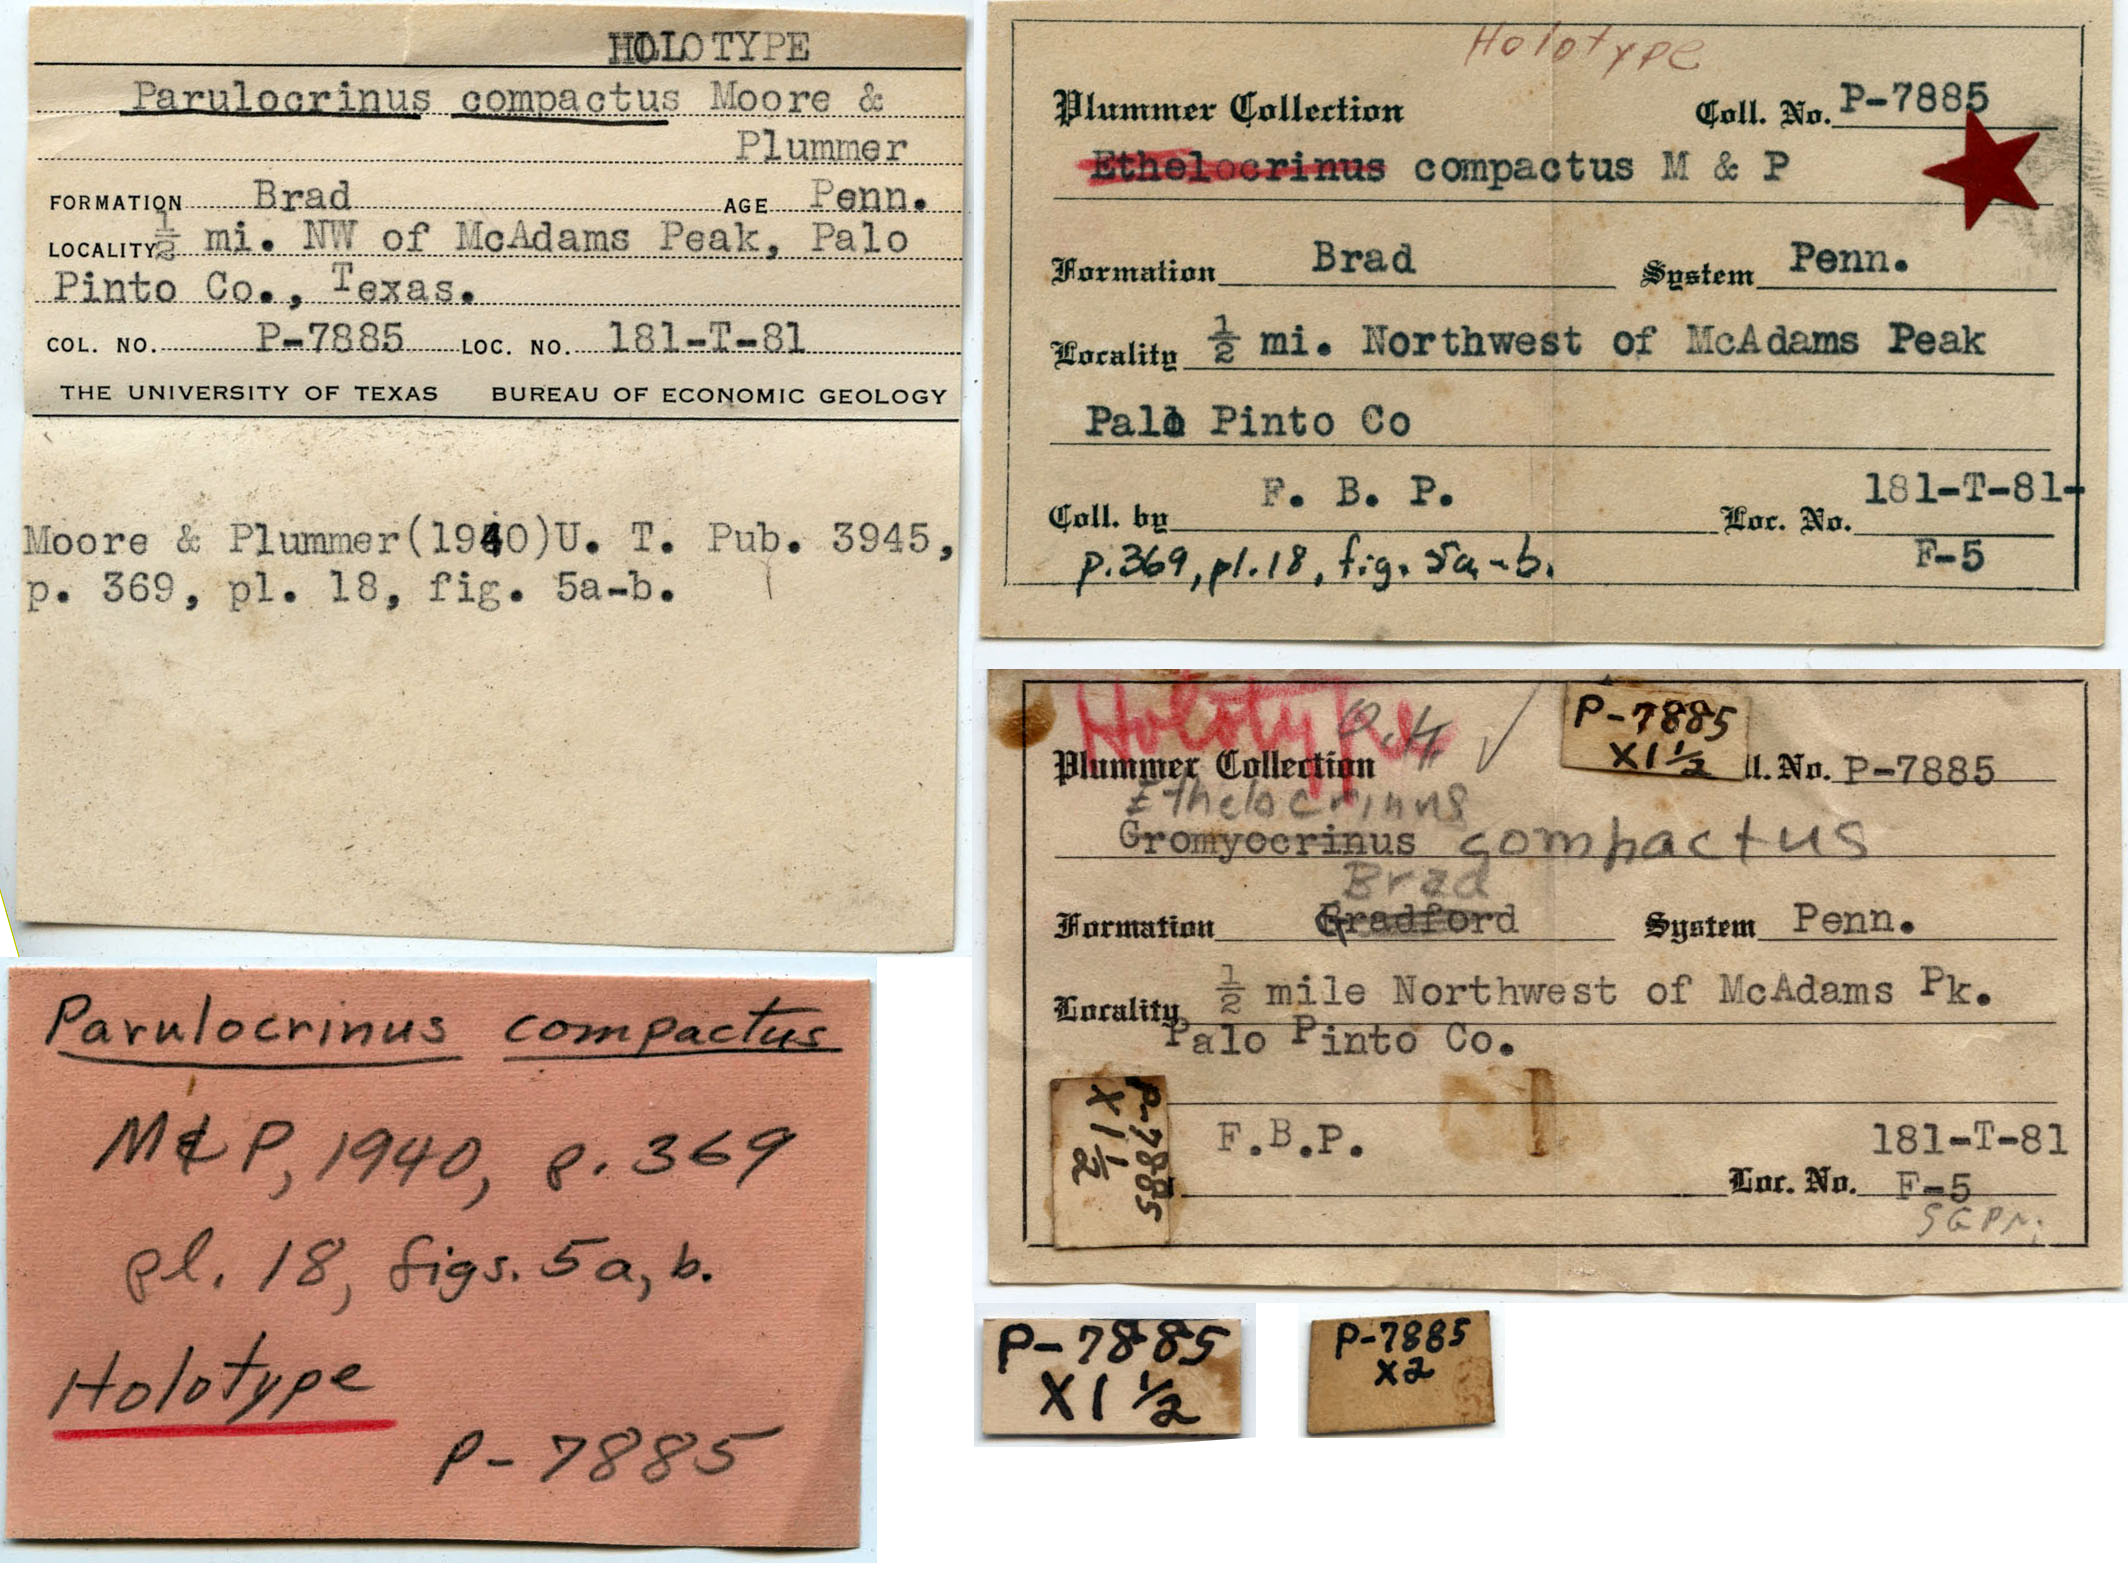 HOLOTYPE
Parulocrinus compactus Moore &
Plummer
FORMATION Brad AGE Penn.
LOCALITY ½ mi. NW of McAdams Peak, Palo
Pinto Co., Texas.
COL. NO. P-7885 LOC. NO. 181-T-81
THE UNIVERSITY OF TEXAS BUREAU OF ECONOMIC GEOLOGY
Moore & Plummer(1940)U. T. Pub. 3945,
p. 369, pl. 18, fig. 5a-b.
Holotype
Plummer Collection Coll. No. P-7885
Ethelocrinus compactus M & P
Formation Brad System Penn.
Locality ½ mi. Northwest of McAdams Peak
Palo Pinto Co
Coll. by F. B. P. Loc. No. 181-T-81-
F-5
p.369, pl.18, fig. 5a-b.
Holotype
P-7885
X1½
Plummer Collection ll. No. P-7885
Ethelocrinus
Gromyocrinus compactus
Brad
Formation Gradford System Penn.
Locality ½ mile Northwest of McAdams Pk.
Palo Pinto Co.
P-7885
X1½
F.B.P. 181-T-81
Loc. No. F-5
Parulocrinus compactus
M&P, 1940, p. 369
pl. 18, figs. 5a, b.
Holotype
P-7885
P-7885
X1½
P-7885
X2